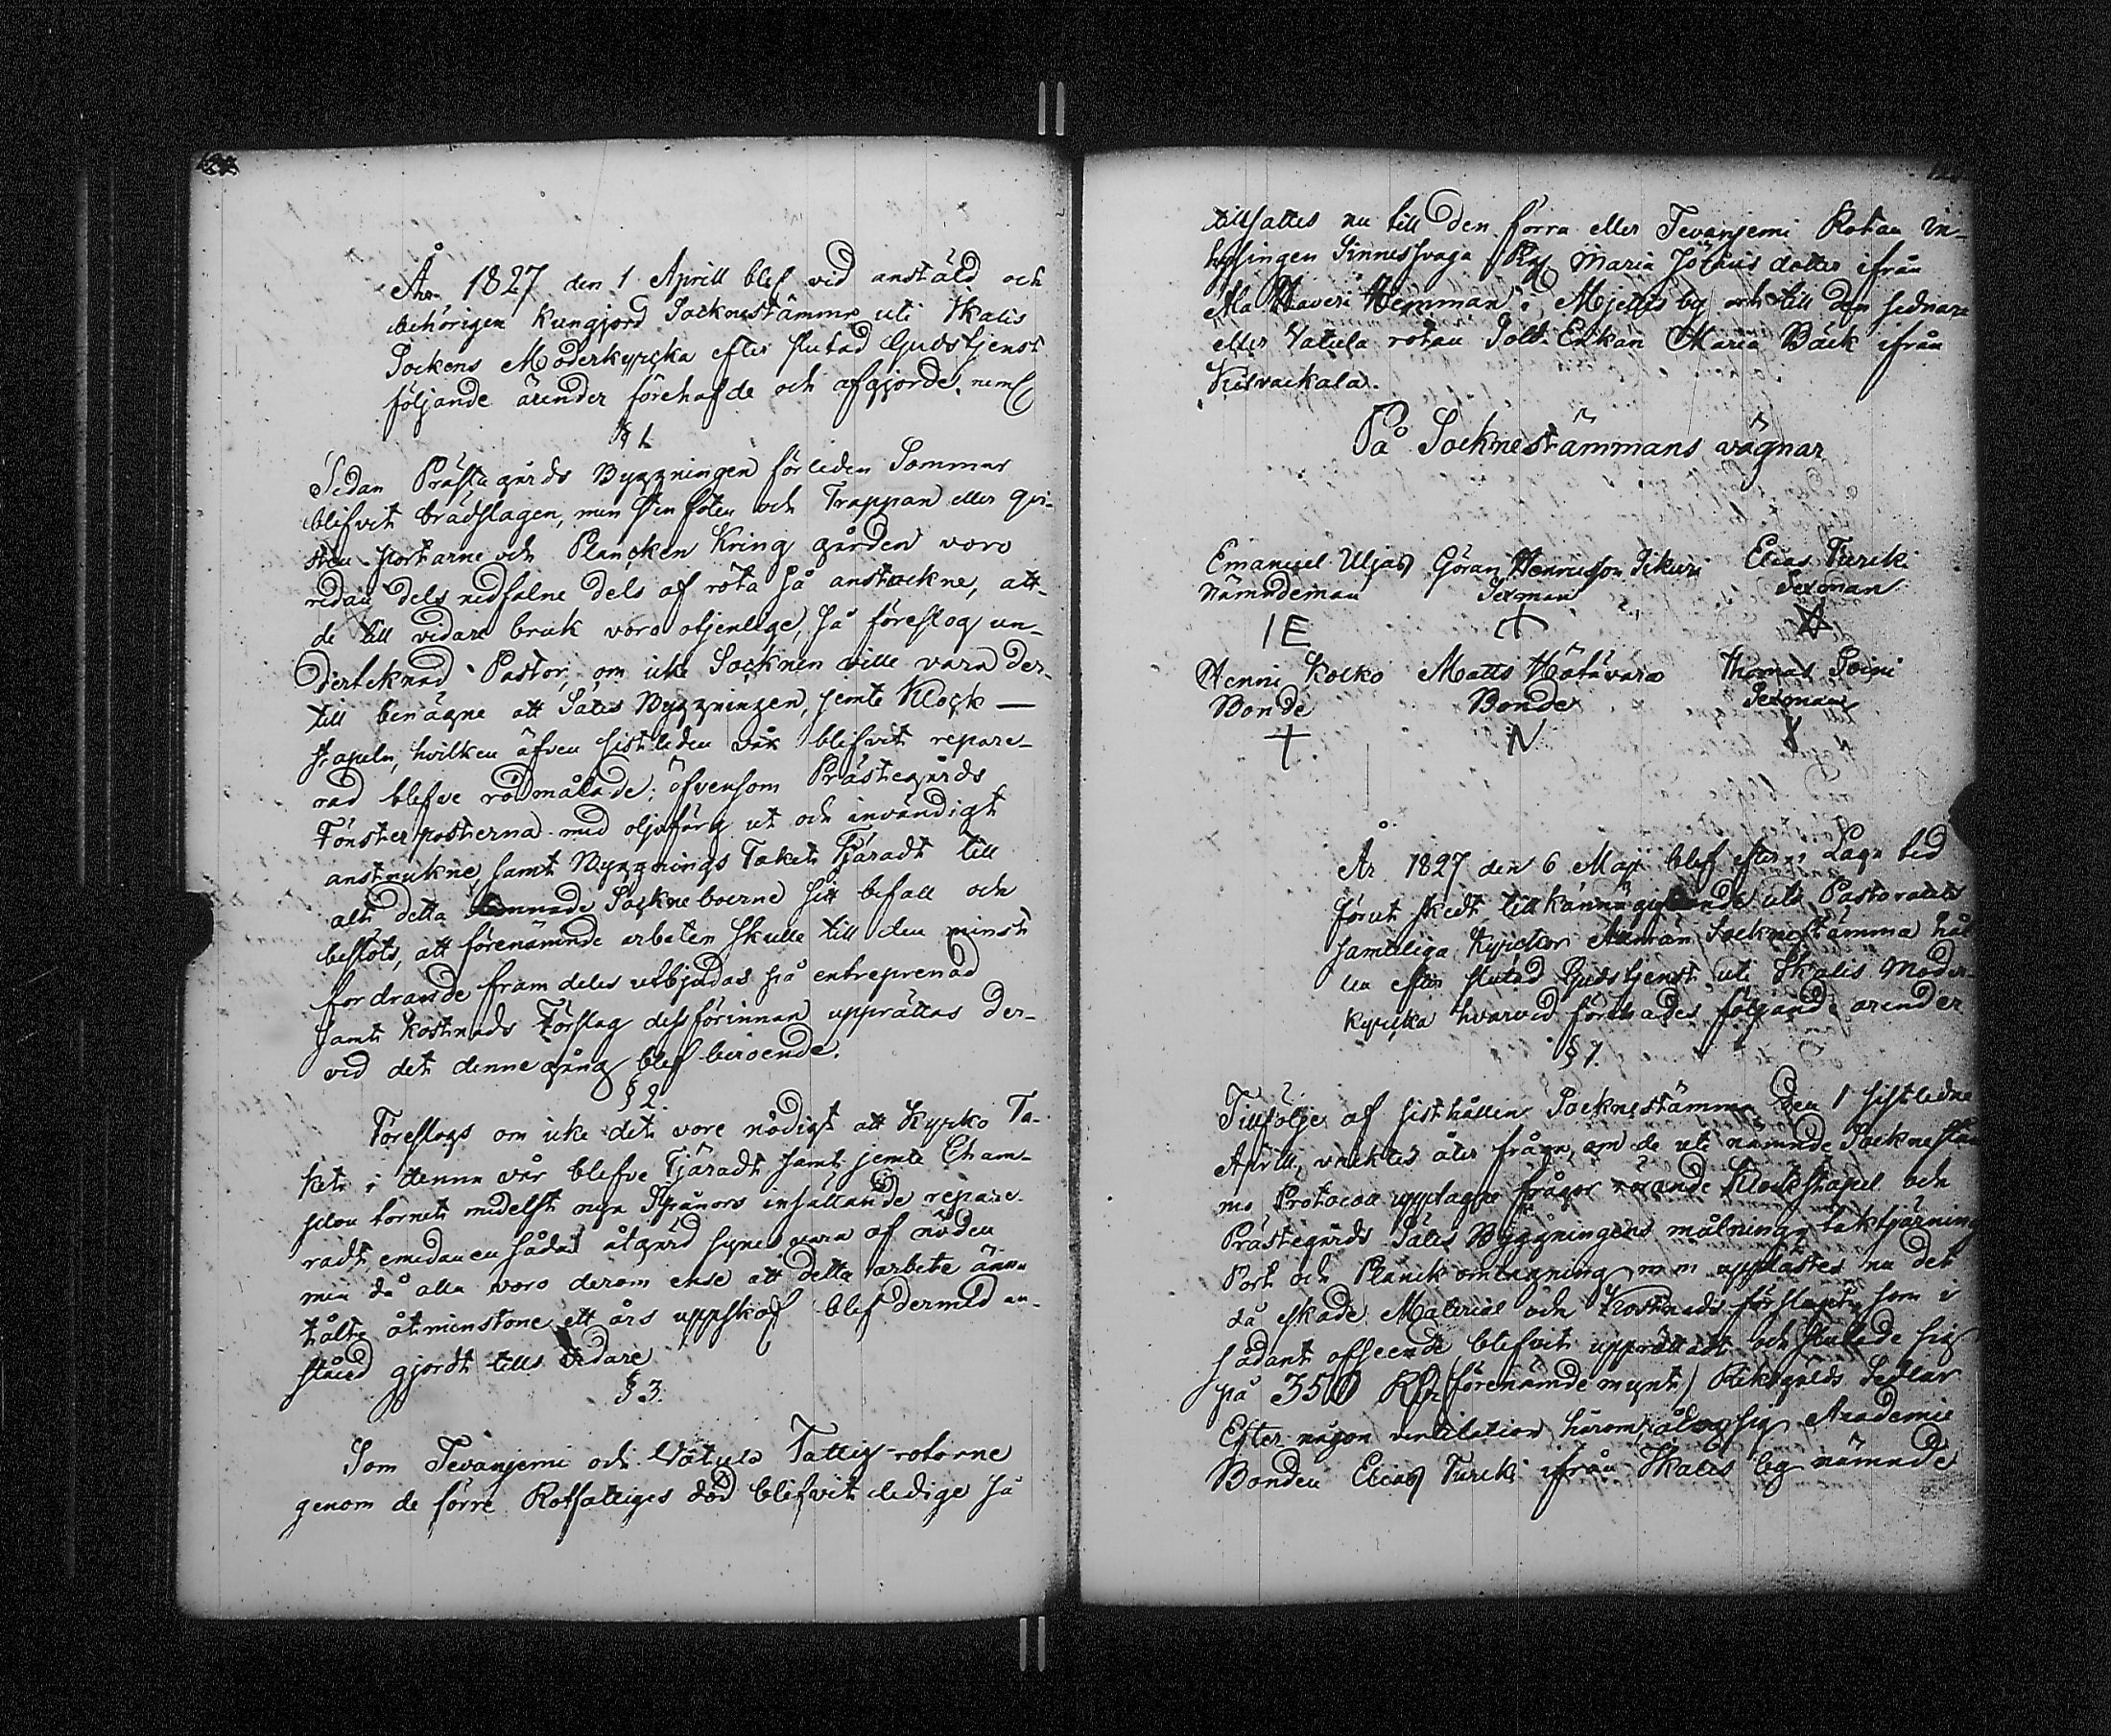 År 1827 den 1 Aprill blef vid anstäld och
behörigen kungjord Socknestämma uti Ikalis
Sockens Moderkyrcka efter slutad Gudstjenst
följande ärender förehafde och afgjorde, neml
§ 1.
Sedan Prästegårds Byggningen förleden Sommar
blifvit brädslagen, men Stenfoten och Trappan eller qvi-
sten portarne och Plancken kring gården voro
redan dels nedfalne dels af röta så anstuckne, att
de till vidare bruk voro otjenlige, så föreslog un-
dertecknad Pastor, om icke Socknen ville vara der
till benägne att Sätes Byggningen, jemte Klock—
stapeln, hvilken äfven sistleden vår blifvit repare-
rad blefve rödmålade; äfvensom Prästegårds
Fönsterposterna med oljefärg ut och invändigt
anstrukne samt Byggnings Taket Tjäradt till
alt detta lemnade Sockneboerne sitt bifall och
beslöts, att förenämnde arbeten skulle till den minst
fordrande framdeles utbjudas på entreprenad
samt Kostnads Förslag dessförinnan upprättas der-
vid det denne gång blef beroende.
§ 2.
Föreslogs om icke det vore nödigt att Kyrko Ta-
ket i denna vår blefve Tjäradt samt jemte
tornet medelst nya Spånors insättande repare-
radt emedan en sådan åtgärd synes vara af nöden
men då alla voro derom ense att detta arbete ännu
tålte åtminstone ett års uppskof blef dermed an-
stånd gjordt tills vidare
§ 3.
Som Tevanjemi och Vatula Fattig-rotarne
genom de förre Rotfattiges död blifvit ledige så
tillsattes nu till den förra eller Tevanjemi Rotan In-
hysingen Sinnessvaga Maria Jöransdotter ifrån
Ala Haveri Hemman i Mjettis by och till den sednare
eller Vatula rotan Sold. Enkan Maria Bäck ifrån
Kilvackala.
På Socknestämmans vägnar
Emanuel Uljas Göran Hennisson Sikuri Elias Turcki
Nämndeman Sexman Sexman
IE
Henni Kolko Matts Hötävara Thomas Soini
Bonde Bonde Sexman
+ N Y
År 1827 den 6 Maji blef efter i Laga tid
förut skedt tillkännagifvande uti Pastoratets
samteliga Kyrckor Allmän Socknestämma hål
len efter slutad Gudstjenst uti Ikalis Moder-
kyrcka hvarvid förehades följande ärender
§ 1.
Tillfölje af sisthållen Socknestämma den 1 sistledne
Aprill, väcktes åter frågan, om de uti nämnde Socknestäm
mo Protocoll upptagne frågor rörande Klockstapel och
Prästegårds Sätes Byggningens målning, taktjärning
Port och Planck omlagning m m upplästes nu det
då äskade Material och Kostnads förslaget, som i
sådant afseende blifvit upprättadt och slutade sig
på 350 Rdr (förenämde mynt) Riksgälds Sedlar
Efter någon ventilation härom, åtog sig Academie
Bonden Elias Turcki ifrån Ikalis by nämnde